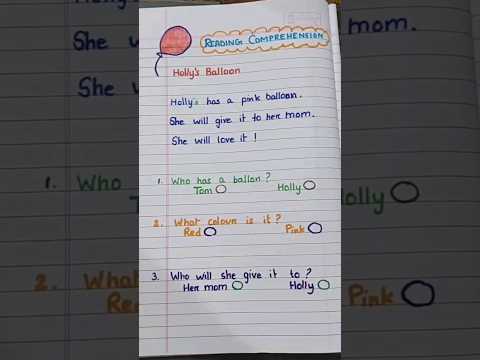 READING COMPREHENSION
Holly's Balloon
Holly's has a pink balloon.
She will give it to her mom.
She will love it !
1. Who has a ballon ?
Tom Holly
2. What colour is it ?
Red Pink
3. Who will she give it to ?
Her mom Holly